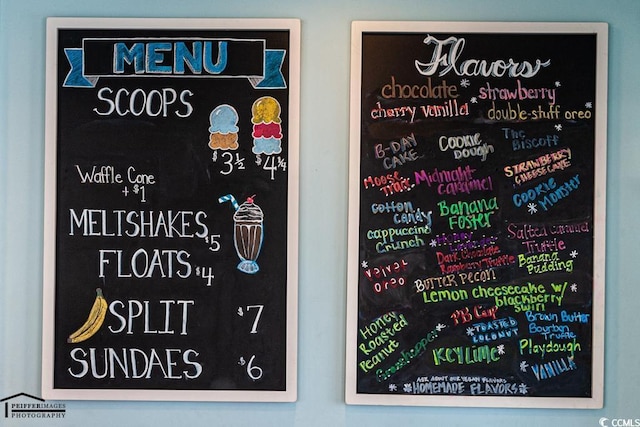 MENU
SCOOPS
$3 1/2 $4 3/4
Waffle Cone
+ $1
MELTSHAKES $5
FLOATS $4
SPLIT $7
SUNDAES $6
Flavors
chocolate strawberry
cherry vanilla double-stuff oreo
B-DAY CAKE
COOKIE DOUGH
THE BISCOFF
STRAWBERRY CHEESECAKE
MOOSE TRACK
Midnight caramel
COOKIE MONSTER
cotton candy
Banana Foster
cappuccino crunch
Salted caramel Truffle
Dark Chocolate Raspberry Truffle
Banana Pudding
velvet oreo
BUTTER PECAN
Lemon cheesecake w/ blackberry swirl
Honey Roasted Peanut
PB Cup
Brown Butter Bourbon Truffle
TOASTED COCONUT
Grasshopper
KEY LIME
Playdough
VANILLA
ASK ABOUT OUR VEGAN FLAVORS
HOMEMADE FLAVORS
PEIFFER IMAGES
PHOTOGRAPHY
© CCMLS